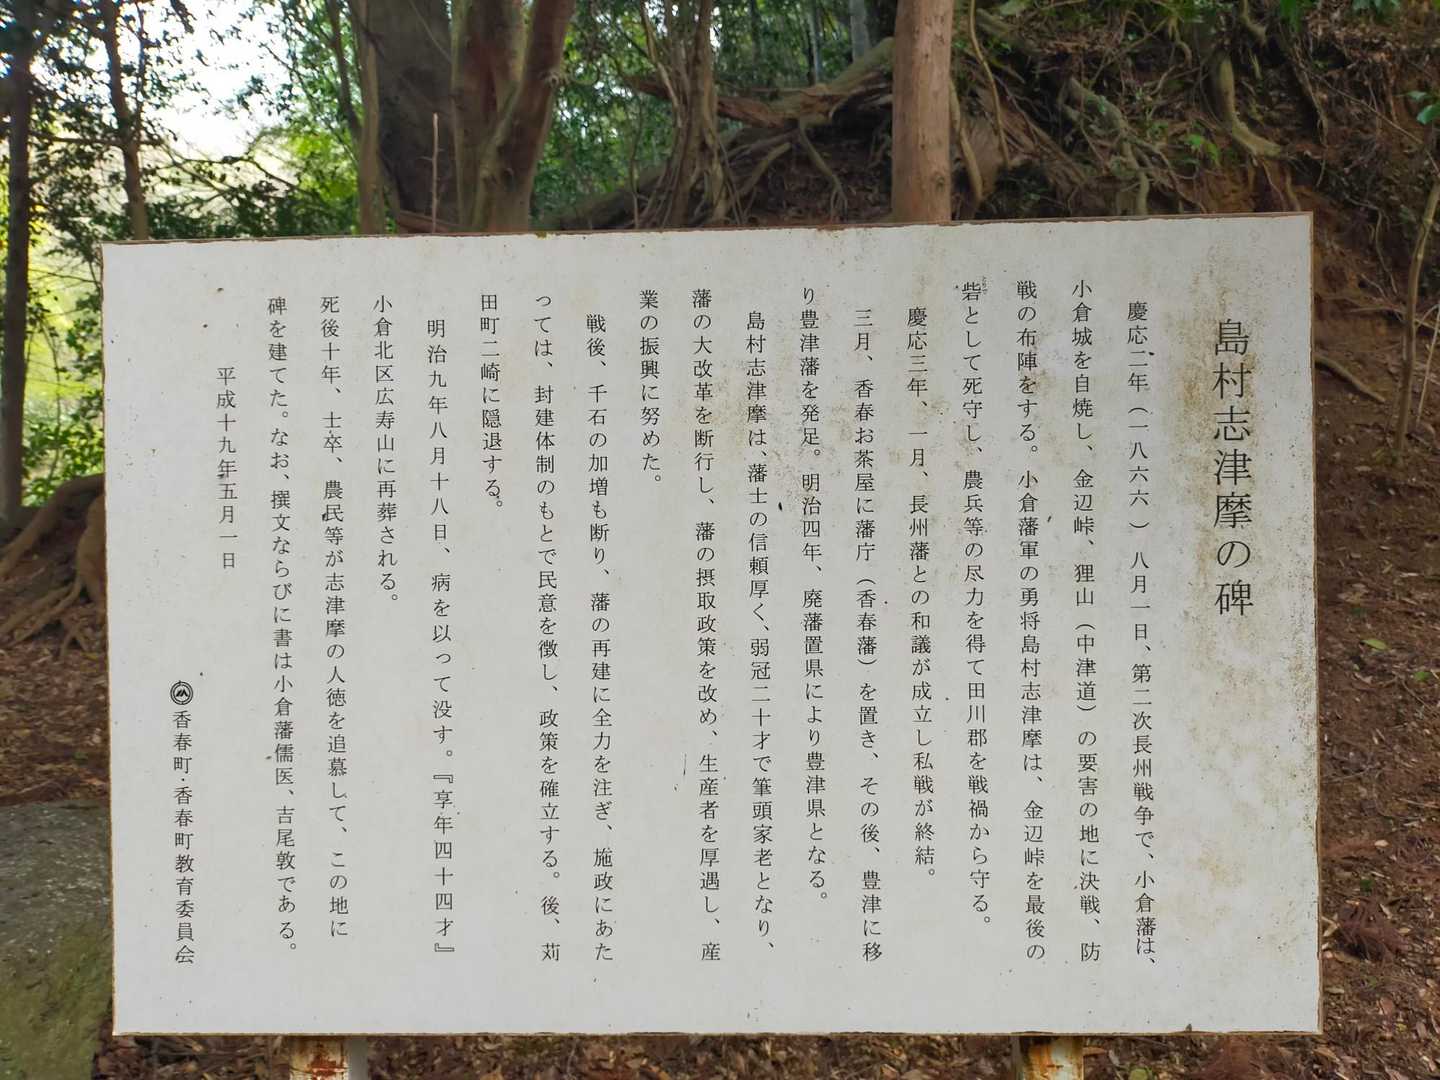 島村志津摩の碑
慶応二年（一八六六）八月一日、第二次長州戦争で、小倉藩は、
小倉城を自焼し、金辺峠、狸山（中津道）の要害の地に決戦、防
戦の布陣をする。小倉藩軍の勇将島村志津摩は、金辺峠を最後の
砦として死守し、農兵等の尽力を得て田川郡を戦禍から守る。
とりで
慶応三年、一月、長州藩との和議が成立し私戦が終結。
三月、香春お茶屋に藩庁（香春藩）を置き、その後、豊津に移
り豊津藩を発足。明治四年、廃藩置県により豊津県となる。
島村志津摩は、藩士の信頼厚く、弱冠二十才で筆頭家老となり、
藩の大改革を断行し、藩の摂取政策を改め、生産者を厚遇し、産
業の振興に努めた。
戦後、千石の加増も断り、藩の再建に全力を注ぎ、施政にあた
っては、封建体制のもとで民意を徴し、政策を確立する。後、苅
田町二崎に隠退する。
明治九年八月十八日、病を以って没す。『享年四十四才』
小倉北区広寿山に再葬される。
死後十年、士卒、農民等が志津摩の人徳を追慕して、この地に
碑を建てた。なお、撰文ならびに書は小倉藩儒医、吉尾敦である。
平成十九年五月一日
香春町・香春町教育委員会